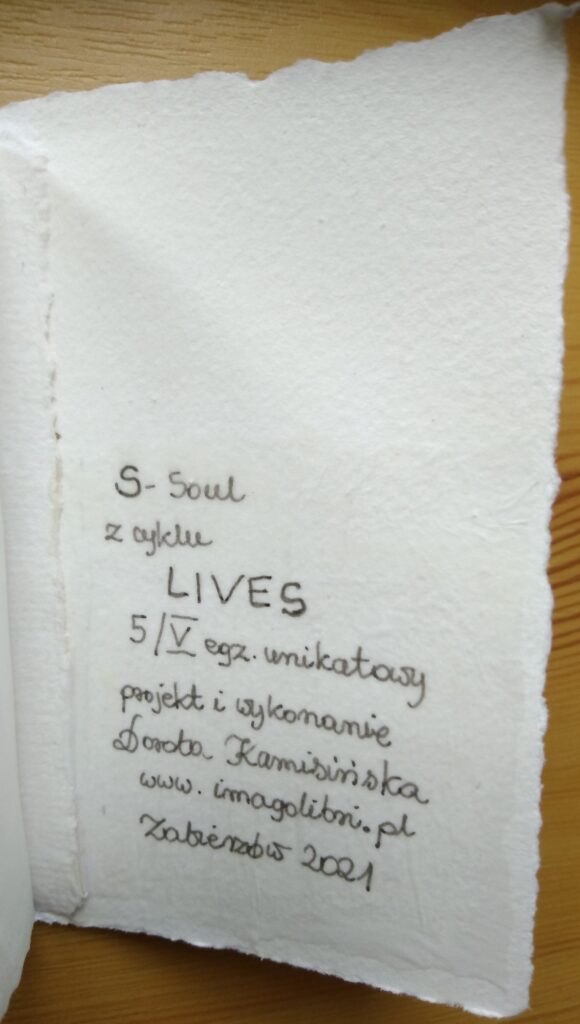 S- Soul
z cyklu
LIVES
5/V egz. unikatowy
projekt i wykonanie
Dorota Kamisińska
www.imagolibri.pl
Zabierzów 2021